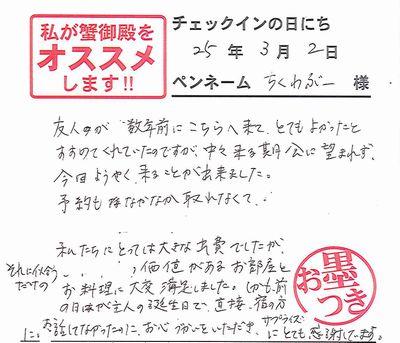 私が蟹御殿を
オススメ
します!!
チェックインの日にち
25 年 3 月 2 日
ペンネーム ちくわぶー 様
友人が 数年前にこちらへ来て、とてもよかったと
すすめてくれていたのですが、中々来る機会に望まれず、
今回ようやく来ることが出来ました。
予約もなかなか取れなくて、
私たちにとっては大きな出費でしたが、
それに似合う
だけの
価値があるお部屋と
お料理に大変満足しました。しかも、前
の日はが主人の誕生日で、直接、宿の方
に、お話してなかったのに、お心づかいをいただき、
サプライズ
にとても感謝してます。
お墨つき